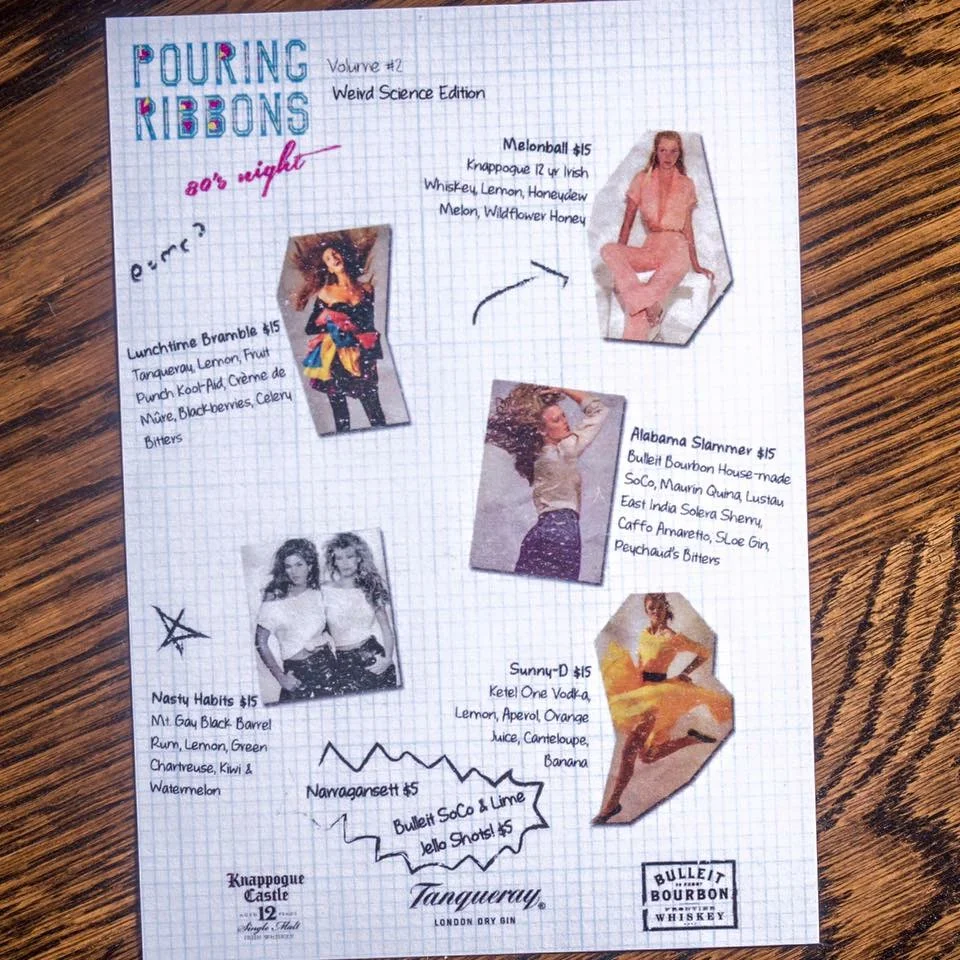 POURING
RIBBONS
80's night
Volume #2
Weird Science Edition
Melonball $15
Knappogue 12 yr Irish
Whiskey, Lemon, Honeydew
Melon, Wildflower Honey
e=mc²
Lunchtime Bramble $15
Tanqueray, Lemon, Fruit
Punch Kool-Aid, Crème de
Mûre, Blackberries, Celery
Bitters
Alabama Slammer $15
Bulleit Bourbon House-made
SoCo, Maurin Quina, Lustau
East India Solera Sherry,
Caffo Amaretto, SLoe Gin,
Peychaud's Bitters
Nasty Habits $15
Mt. Gay Black Barrel
Rum, Lemon, Green
Chartreuse, Kiwi &
Watermelon
Sunny-D $15
Ketel One Vodka,
Lemon, Aperol, Orange
Juice, Canteloupe,
Banana
Narragansett $5
Bulleit SoCo & Lime
Jello Shots! $5
Knappogue
Castle
AGED 12 YEARS
Single Malt
IRISH WHISKEY
Tanqueray®
LONDON DRY GIN
BULLEIT
BOURBON
FRONTIER
WHISKEY